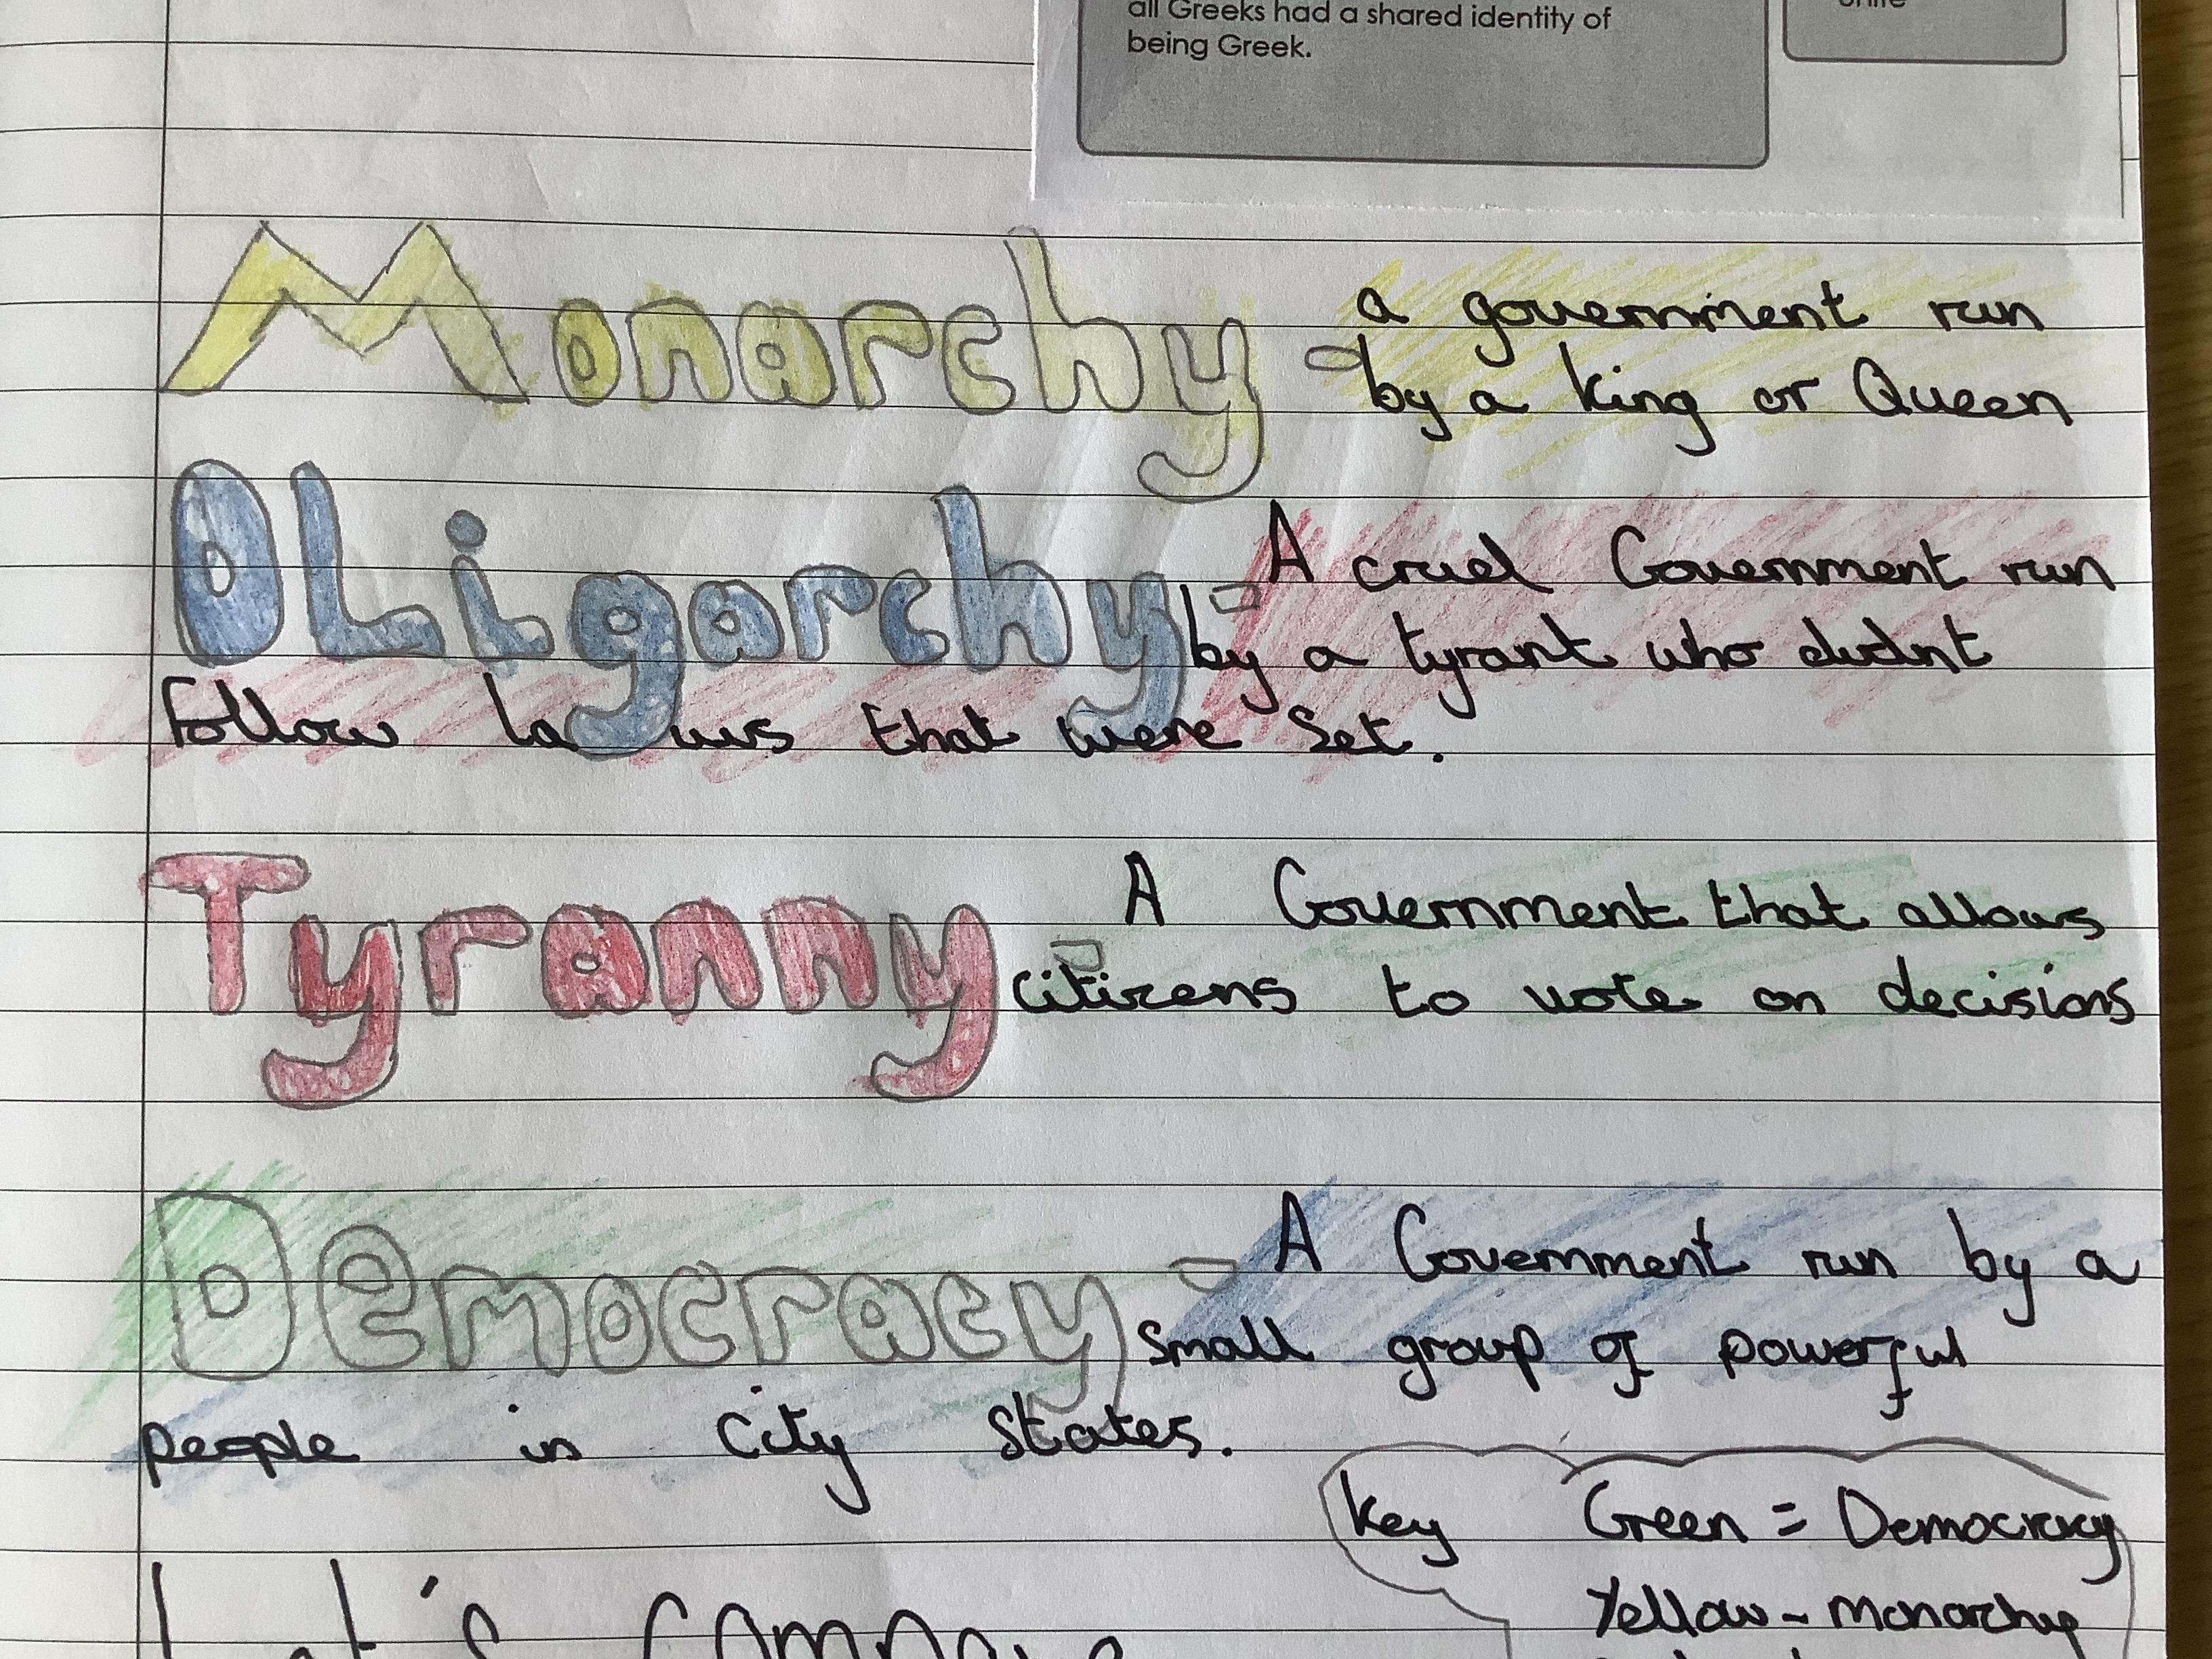 all Greeks had a shared identity of
being Greek.
Monarchy - a government run
by a king or Queen
OLigarchy - A cruel Government run
by a tyrant who didnt
follow laws that were Set.
Tyranny - A Government that allows
citizens to vote on decisions
Democracy - A Government run by a
small group of powerful
people in City States.
Key Green = Democracy
Yellow - monarchy
Let's compare